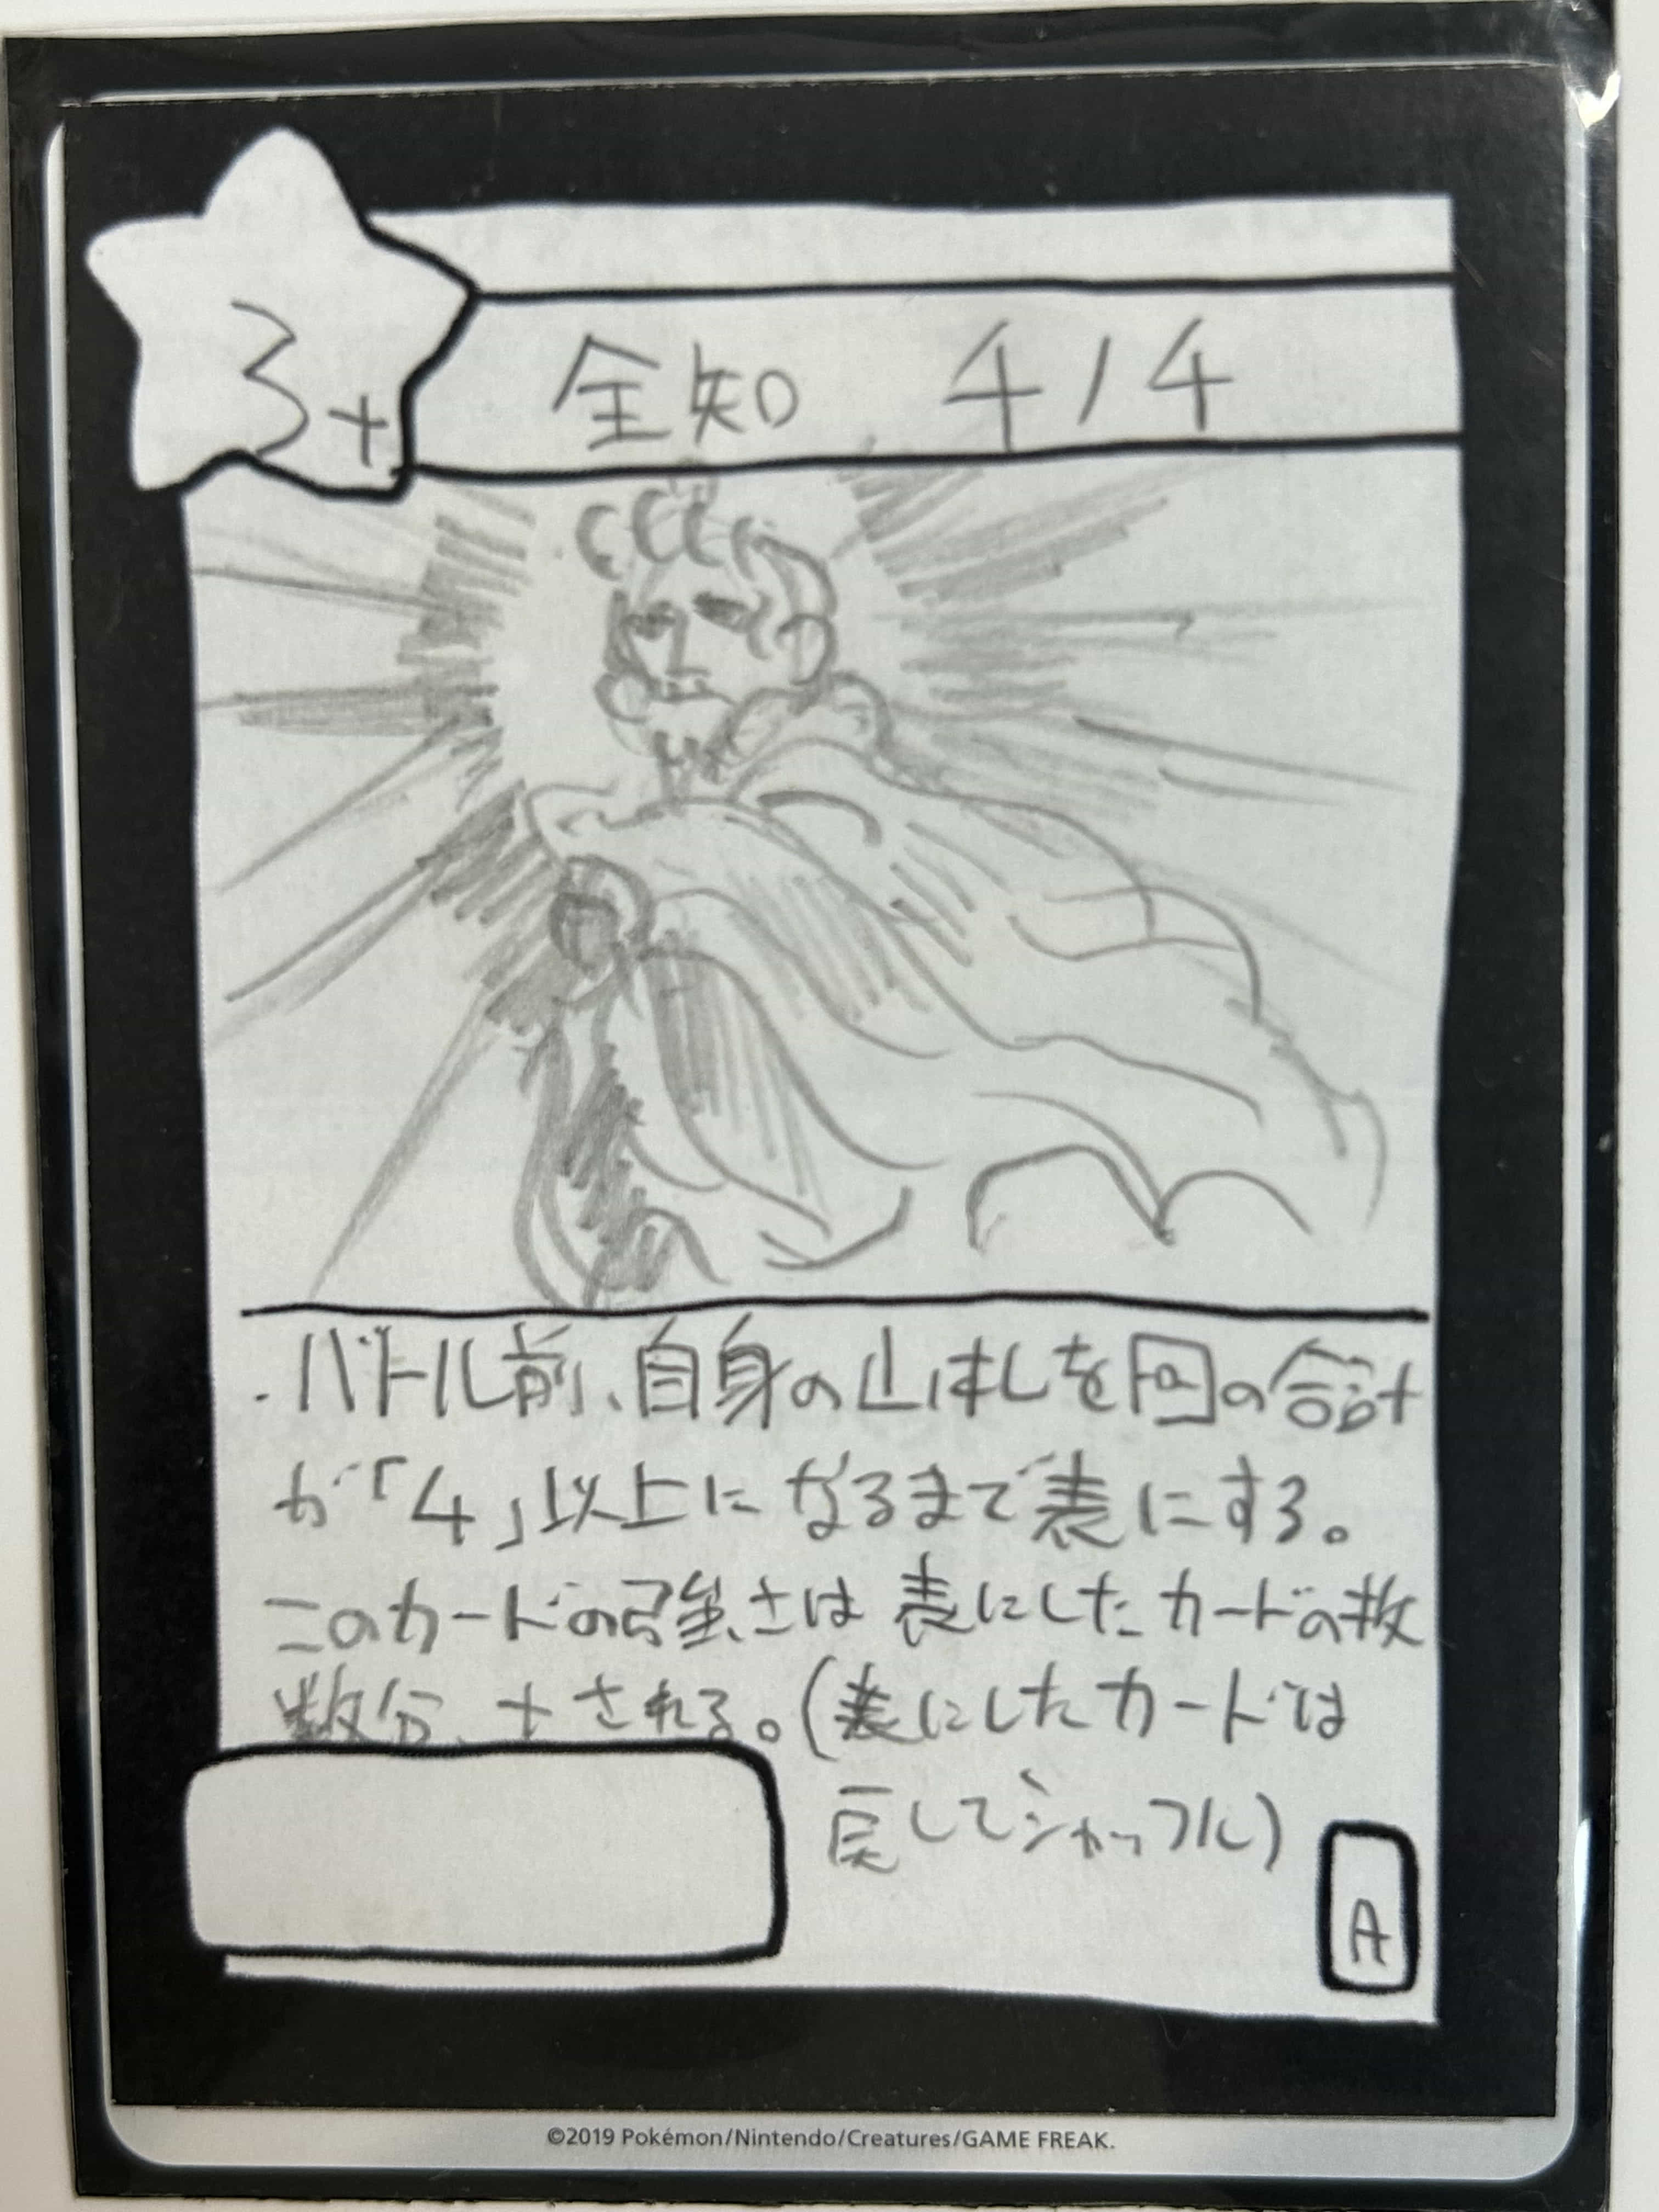 3+
全知 4/4
・バトル前、自身の山札を回の合計
が「4」以上になるまで表にする。
このカードの強さは表にしたカードの枚
数分、+される。(表にしたカードは
戻してシャッフル)
A
©2019 Pokémon/Nintendo/Creatures/GAME FREAK.